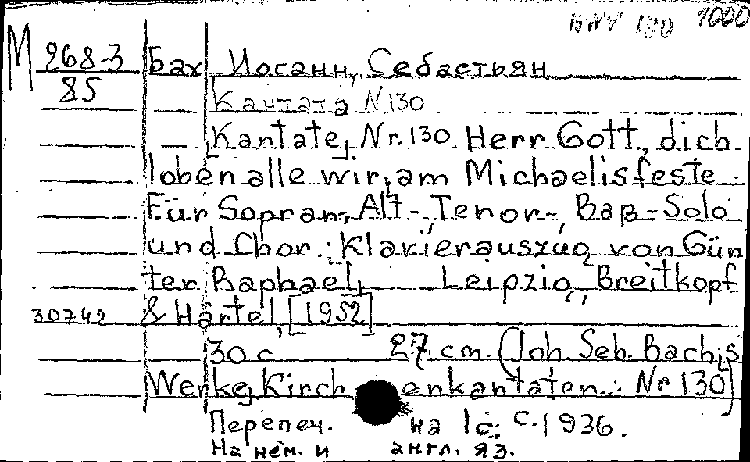 BWV 130 1000
М 968-3 Бах, Иосанн, Себастьян
85 Кантата N130
— [Kantate], Nr. 130 Herr Gott, dich
loben alle wir, am Michaelisfeste.
Für Sopran-, Alt-, Tenor-, Baß-Solo
und Chor. Klavierauszug von Gün
ter Raphael, Leipzig, Breitkopf
30742 & Härtel, [1952]
30 с. 27 cm. (Joh. Seb. Bachs
Werke, Kirchenkantaten.: Nr 130)
Перепеч. на 1 с.: с. 1936.
На нем. и англ. яз.